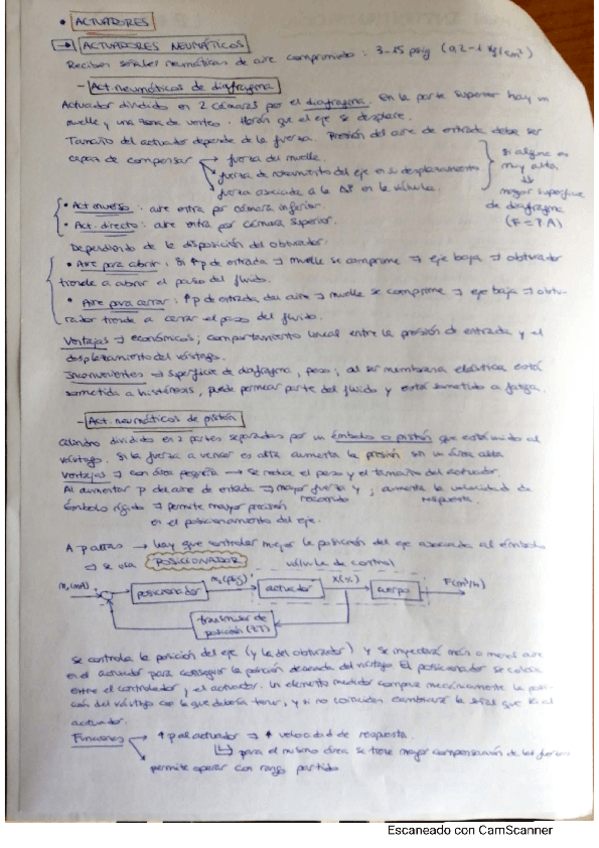 • ACTUADORES
→ ACTUADORES NEUMÁTICOS
Reciben señales neumáticas de aire comprimido: 3-15 psig (0,2-1 kg/cm²)
- Act. neumáticos de diafragma
Actuador dividido en 2 cámaras por el diafragma. En la parte superior hay un
muelle y una zona de venteo. Harán que el eje se desplace.
Tamaño del actuador depende de la fuerza. Presión del aire de entrada debe ser
capaz de compensar → fuerza del muelle.
→ fuerza de rozamiento del eje en su desplazamiento
→ fuerza asociada a la ΔP en la válvula.
Si alguna es
muy alta
⇓
mayor superficie
de diafragma
(F = P.A)
• Act. inverso: aire entra por cámara inferior.
• Act. directo: aire entra por cámara superior.
Dependiendo de la disposición del obturador:
• Aire para abrir: Si ↑p de entrada → muelle se comprime → eje baja → obturador
tiende a abrir el paso del fluido.
• Aire para cerrar: ↑p de entrada del aire → muelle se comprime → eje baja → obtu-
rador tiende a cerrar el paso del fluido.
Ventajas → económicos; comportamiento lineal entre la presión de entrada y el
desplazamiento del vástago.
Inconvenientes → superficie de diafragma, peso; al ser membrana elástica está
sometida a histéresis, puede permear parte del fluido y está sometido a fatiga.
- Act. neumáticos de pistón
Cilindro dividido en 2 partes separadas por un émbolo o pistón que está unido al
vástago. Si la fuerza a vencer es alta aumenta la presión sin un área alta
Ventajas → con área pequeña → se reduce el peso y el tamaño del actuador.
Al aumentar p del aire de entrada → mayor fuerza y recorrido; aumenta la velocidad de respuesta.
Émbolo rígido → permite mayor precisión
en el posicionamiento del eje.
A p altas → hay que controlar mejor la posición del eje asociada al émbolo
→ se usa POSICIONADOR
válvula de control
m₁(mA)
posicionador
m₂(psig)
actuador
X(%)
cuerpo
F(m³/h)
transmisor de
posición (ZT)
Se controla la posición del eje (y la del obturador) y se inyectará más o menos aire
en el actuador para conseguir la posición deseada del vástago. El posicionador se coloca
entre el controlador y el actuador. Un elemento medidor compara mecánicamente la posi-
ción del vástago con la que debería tener, y si no coinciden cambiará la señal que va al
actuador.
Funciones → ↑ p al actuador → ↑ velocidad de respuesta.
↳ para el mismo área se tiene mayor compensación de las fuerzas
permite operar con rango partido
Escaneado con CamScanner